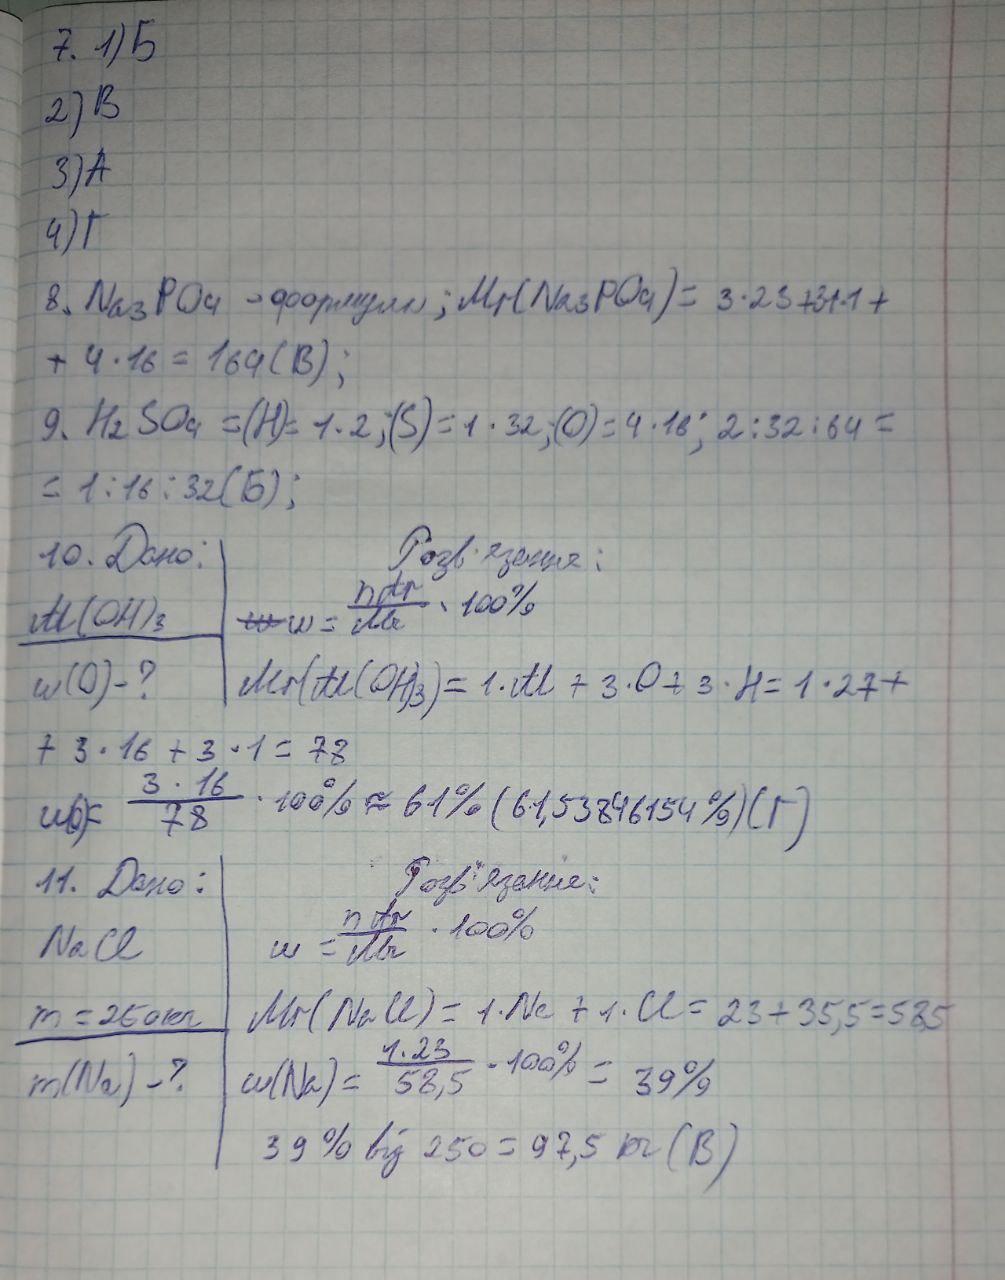 7. 1) Б
2) В
3) А
4) Г
8. Na3PO4 - формула ; Mr(Na3PO4) = 3·23+31·1+
+ 4·16 = 164(В);
9. H2SO4 = (H)= 1·2 ;(S) = 1·32 ;(O)=4·16; 2:32:64 =
= 1:16:32(Б);
10. Дано: Розв'язання:
Al(OH)3 w = nAr/Mr · 100%
w(O)-? Mr(Al(OH)3) = 1·Al + 3·O+ 3·H = 1·27+
+ 3·16 + 3·1 = 78
w(O)= 3·16/78 · 100% ≈ 61% (61,53846154%)(Г)
11. Дано: Розв'язання:
NaCl w = nAr/Mr · 100%
m = 250кг Mr(NaCl) = 1·Na + 1·Cl = 23+35,5=58,5
m(Na)-? w(Na) = 1·23/58,5 · 100% = 39%
39% від 250 = 97,5 кг (В)